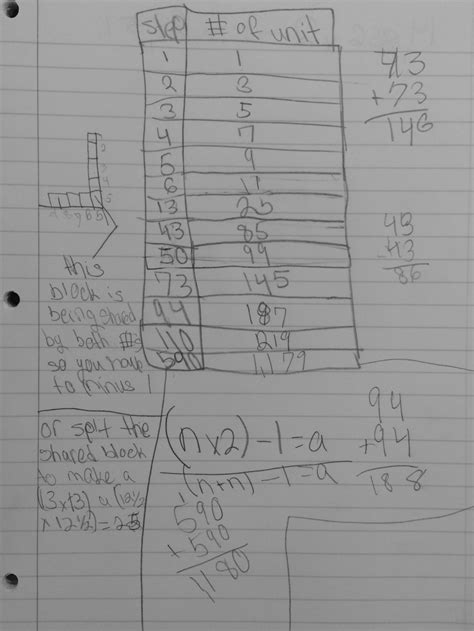 step # of unit
1 1
2 3
3 5
4 7
5 9
6 11
13 25
43 85
50 99
73 145
94 187
110 219
590 1179
43
+73
146
43
43
86
this
block is
being shared
by both #s
so you have
to minus 1
or split the
shared block
to make a
(n×2)-1=a
(n+n)-1=a
590
+590
1180
94
+94
188